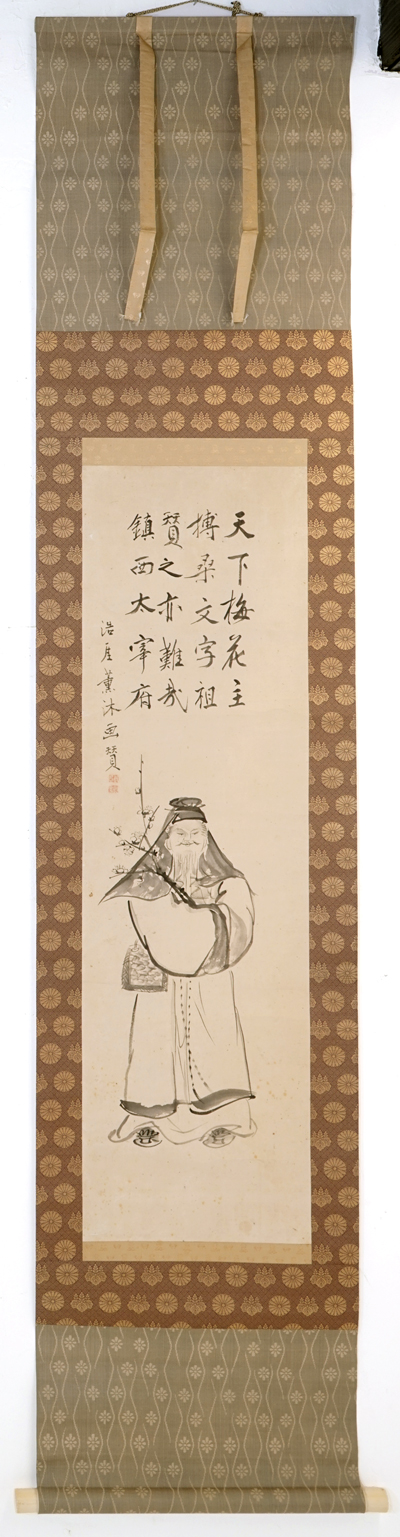 天下梅花主
搏桑文字祖
賛之亦難哉
鎮西太宰府
浩屋薫沐画賛